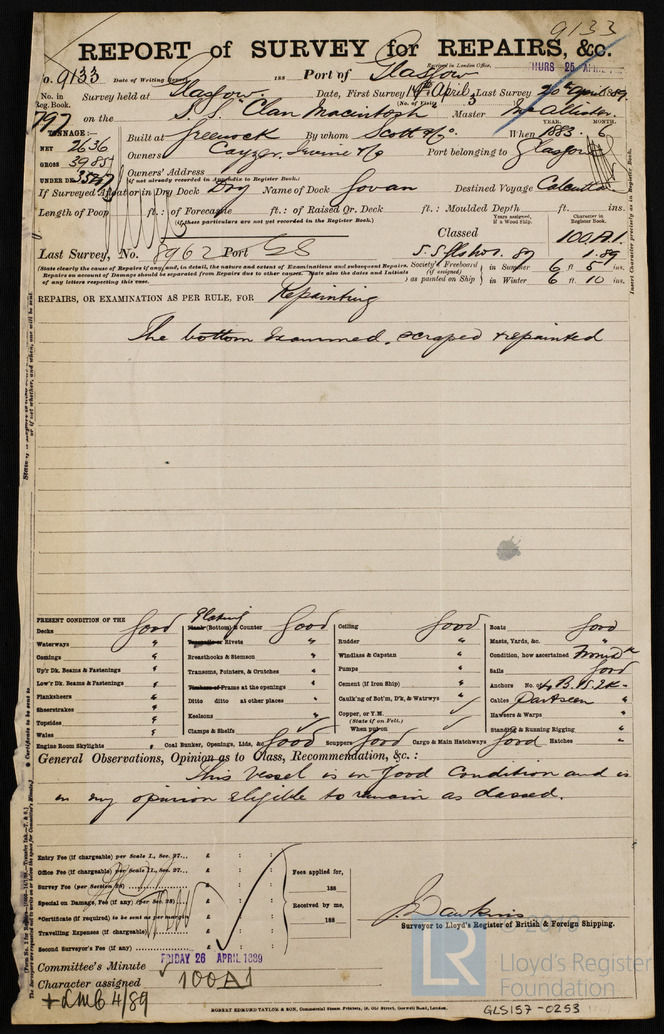 9133
REPORT of SURVEY for REPAIRS, &c.
Received in London Office,
THURS 25 APRIL
No. 9133 Date of Writing Report 188 Port of Glasgow
No. in Reg. Book. Survey held at Glasgow. Date, First Survey 19th April Last Survey 20th April 1889.
(No. of Visits) 3
797 on the S.S. "Clan Macintosh" Master McAllister.
TONNAGE:—
YEAR. MONTH.
NET 2636 Built at Greenock By whom Scott & Co. When 1883. 6
GROSS 3985 Owners Cayzer, Irvine & Co Port belonging to Glasgow
UNDER DK. Owners' Address
(if not already recorded in Appendix to Register Book.)
If Surveyed Afloat or in Dry Dock Dry Name of Dock Govan Destined Voyage Calcutta
Length of Poop ft.: of Forecastle ft.: of Raised Qr. Deck ft.: Moulded Depth ft. ins.
(if these particulars are not yet recorded in the Register Book.)
Years assigned, if a Wood Ship. Character in Register Book.
Classed 100.A.1.
Last Survey, No. 8962 Port GS 1.89
(State clearly the cause of Repairs if any; and, in detail, the nature and extent of Examinations and subsequent Repairs. Society's Freeboard in Summer 6 ft 5 ins.
Repairs on account of Damage should be separated from Repairs due to other causes. State also the dates and initials (if assigned)
of any letters respecting this case. as painted on Ship in Winter 6 ft 10 ins.
REPAIRS, OR EXAMINATION AS PER RULE, FOR Repainting
The bottom examined, scraped & repainted
PRESENT CONDITION OF THE
Decks Good
Waterways "
Comings "
Up'r Dk. Beams & Fastenings "
Low'r Dk. Beams & Fastenings "
Planksheers "
Sheerstrakes "
Topsides "
Wales "
Engine Room Skylights "
Plating
Plank (Bottom) & Counter Good
Treenails or Rivets "
Breasthooks & Stemson "
Transoms, Pointers, & Crutches "
Timbers or Frame at the openings "
Ditto ditto at other places "
Keelsons "
Clamps & Shelfs
Coal Bunker, Openings, Lids, &c. Good
Ceiling Good
Rudder "
Windlass & Capstan "
Pumps "
Cement (if Iron Ship) "
Caulk'ng of Bot'm, D'k, & Watrwys
Copper, or Y.M.
(State if on Felt.)
When put on
Scuppers Good Cargo & Main Hatchways Good Hatches "
Boats Good
Masts, Yards, &c. "
Condition, how ascertained From dk
Sails Good
Anchors No. of 4 B. 1 S. 2 K.
Cables Part seen
Hawsers & Warps "
Standing & Running Rigging "
General Observations, Opinion as to Class, Recommendation, &c.:
This vessel is in Good Condition and is
in my opinion eligible to remain as classed.
Entry Fee (if chargeable) per Scale I., Sec. 27... £ : :
Office Fee (if chargeable) per Scale I., Sec. 27... £ : :
Survey Fee (per Section 28) £ : :
Special on Damage, Fee (if any) (per Sec. 28) £ : :
Certificate (if required) to be sent as per margin £ : :
Travelling Expenses (if chargeable) £ : :
Second Surveyor's Fee (if any) £ : :
Fees applied for,
188
Received by me,
188
J. Dawkins
Surveyor to Lloyd's Register of British & Foreign Shipping.
Committee's Minute FRIDAY 26 APRIL 1889
Character assigned 100A1
+LMC 4/89
ROBERT EDMUND TAYLOR & SON, Commercial Steam Printers, 19, Old Street, Goswell Road, London.
LR
© 2019
Lloyd's Register
Foundation
GLS157-0253